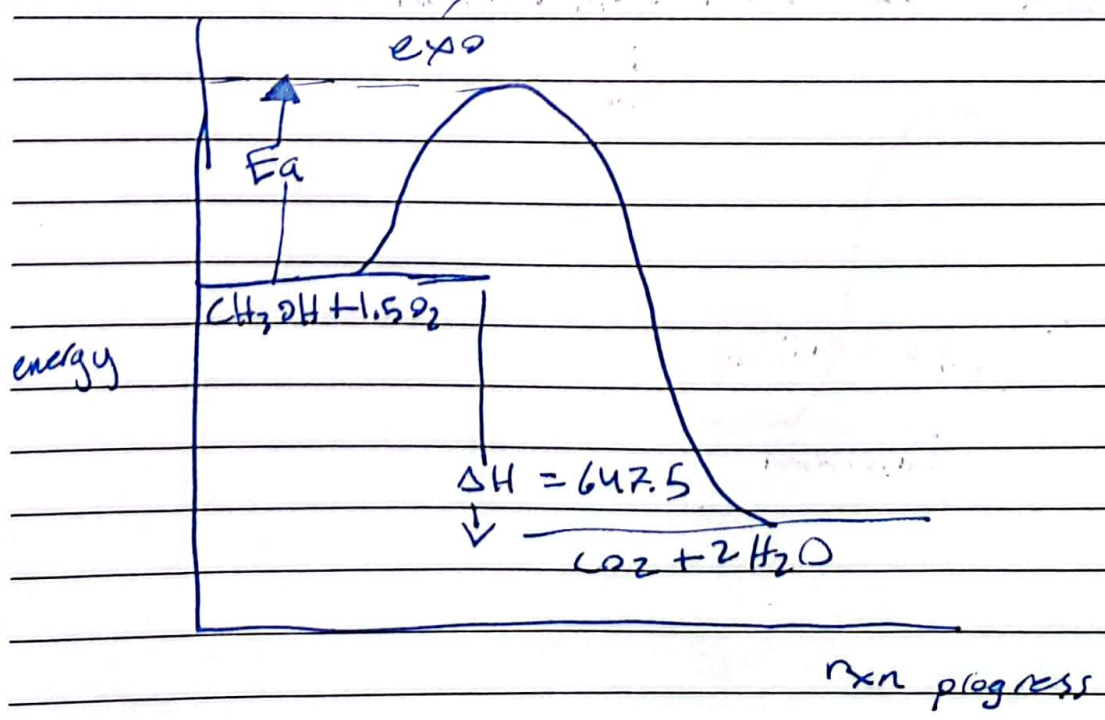 exo
Ea
CH3OH+1.5O2
energy
ΔH = 647.5
CO2 + 2H2O
rxn progress